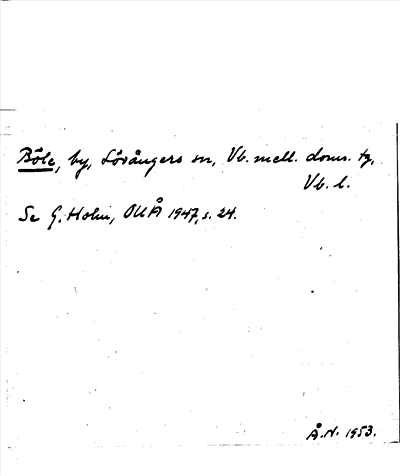 Böle, by, Lövångers sn, Vb. mell. doms. tg,
Vb. l.
Se G. Holm, OUÅ 1947, s. 24.
Å.N. 1953.